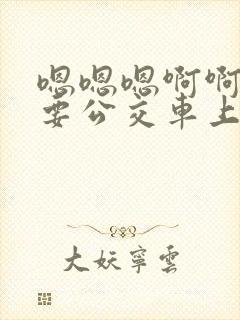 嗯嗯嗯啊啊
要公交车上
大妖寧雲